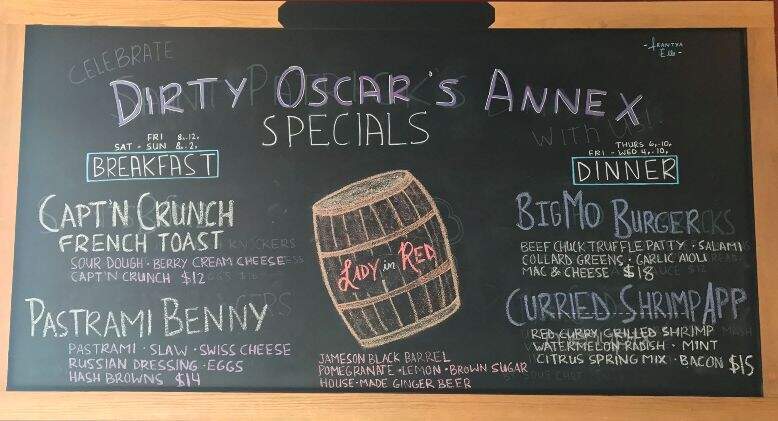 CELEBRATE
-FRANTXA
Elle-
DIRTY OSCAR'S ANNEX
SPECIALS
With Us!
FRI 8A-12P
SAT - SUN 8A-2P
BREAKFAST
CAPT'N CRUNCH
FRENCH TOAST
SOUR DOUGH · BERRY CREAM CHEESE
CAPT'N CRUNCH $12
PASTRAMI BENNY
PASTRAMI · SLAW · SWISS CHEESE
RUSSIAN DRESSING · EGGS
HASH BROWNS $14
LADY in RED
JAMESON BLACK BARREL
POMEGRANATE · LEMON · BROWN SUGAR
HOUSE-MADE GINGER BEER
THURS 6P-10P
FRI - WED 4P-10P
DINNER
BIG MO BURGER
BEEF CHUCK TRUFFLE PATTY · SALAMI
COLLARD GREENS · GARLIC AIOLI
MAC & CHEESE $18
CURRIED SHRIMP APP
RED CURRY GRILLED SHRIMP
WATERMELON RADISH · MINT
CITRUS SPRING MIX · BACON $15